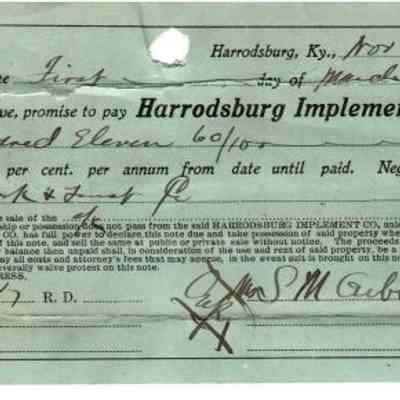 Harrodsburg, Ky., Nov
First day of March
ve, promise to pay Harrodsburg Implemen
dred Eleven 60/100
per cent. per annum from date until paid. Neg
& Trust Co
e sale of the
ship or possession does not pass from the said HARRODSBURG IMPLEMENT CO., unles
CO. has full power to declare this note due and take possession of said property whe
of this note, and sell the same at public or private sale without notice. The proceeds
balance then unpaid shall, in consideration of the use and rent of said property, be a
ay all costs and attorney's fees that may accrue, in the event suit is brought on this no
verally waive protest on this note.
RESS,
R. D.
S M